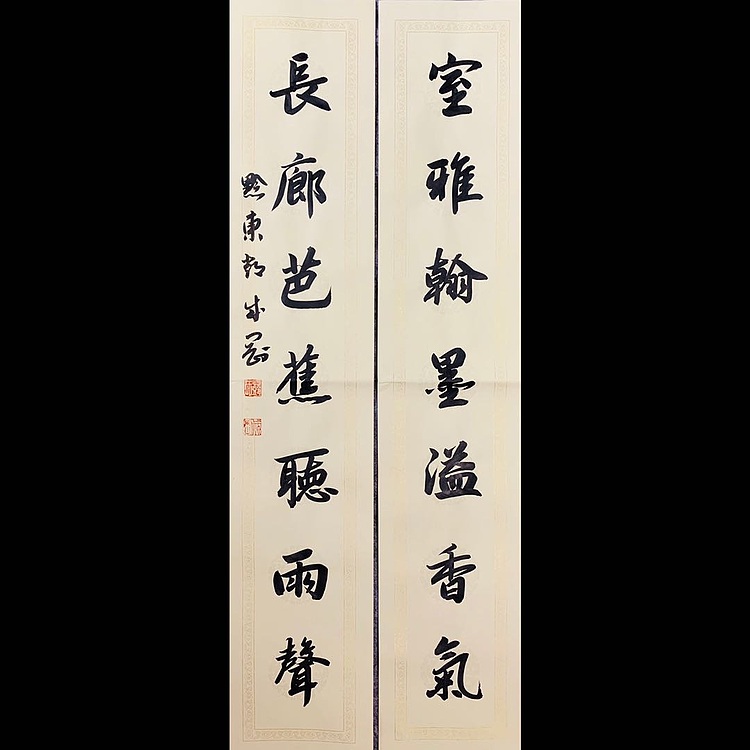 室雅翰墨溢香氣
長廊芭蕉聽雨聲
黔東彭成剛